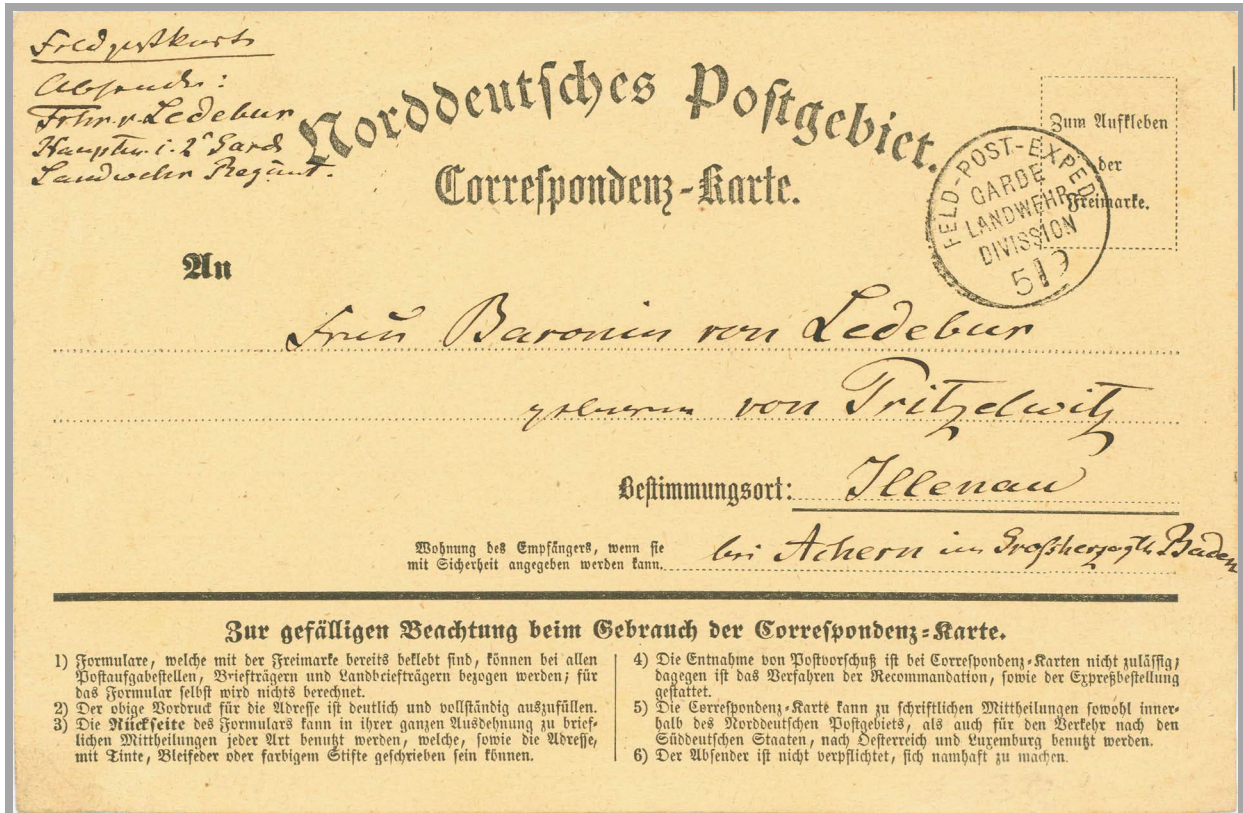 Feldpostkarte
Absender:
Frhr. v. Ledebur
Hauptm. i. 2t Garde
Landwehr Regimt.
Norddeutsches Postgebiet.
Correspondenz-Karte.
Zum Aufkleben
der
Freimarke.
FELD-POST-EXPED
GARDE
LANDWEHR
DIVISSION
5 9
An
Frau Baronin von Ledebur
geborene von Tritzelwitz
Bestimmungsort: Illenau
Wohnung des Empfängers, wenn sie
mit Sicherheit angegeben werden kann.
bei Achern im Großherzogth. Baden
Zur gefälligen Beachtung beim Gebrauch der Correspondenz-Karte.
1) Formulare, welche mit der Freimarke bereits beklebt sind, können bei allen
Postaufgabestellen, Briefträgern und Landbriefträgern bezogen werden; für
das Formular selbst wird nichts berechnet.
2) Der obige Vordruck für die Adresse ist deutlich und vollständig auszufüllen.
3) Die Rückseite des Formulars kann in ihrer ganzen Ausdehnung zu brief-
lichen Mittheilungen jeder Art benutzt werden, welche, sowie die Adresse,
mit Tinte, Bleifeder oder farbigem Stifte geschrieben sein können.
4) Die Entnahme von Postvorschuß ist bei Correspondenz-Karten nicht zulässig;
dagegen ist das Verfahren der Recommandation, sowie der Expreßbestellung
gestattet.
5) Die Correspondenz-Karte kann zu schriftlichen Mittheilungen sowohl inner-
halb des Norddeutschen Postgebiets, als auch für den Verkehr nach den
Süddeutschen Staaten, nach Oesterreich und Luxemburg benutzt werden.
6) Der Absender ist nicht verpflichtet, sich namhaft zu machen.